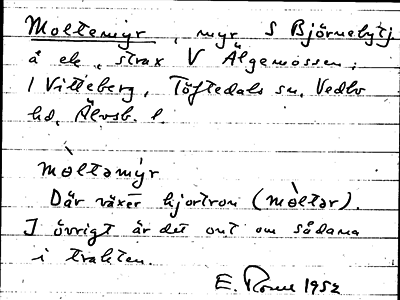 Moltemyr, myr S Björnebytj
å ek. strax V Älgemossen;
/ Vitteberg, Töftedals sn, Vedbo
hd, Älvsb. l.
mòltəmýr
Där växer hjortron (mòltər).
I övrigt är det ont om sådana
i trakten.
E. 1952